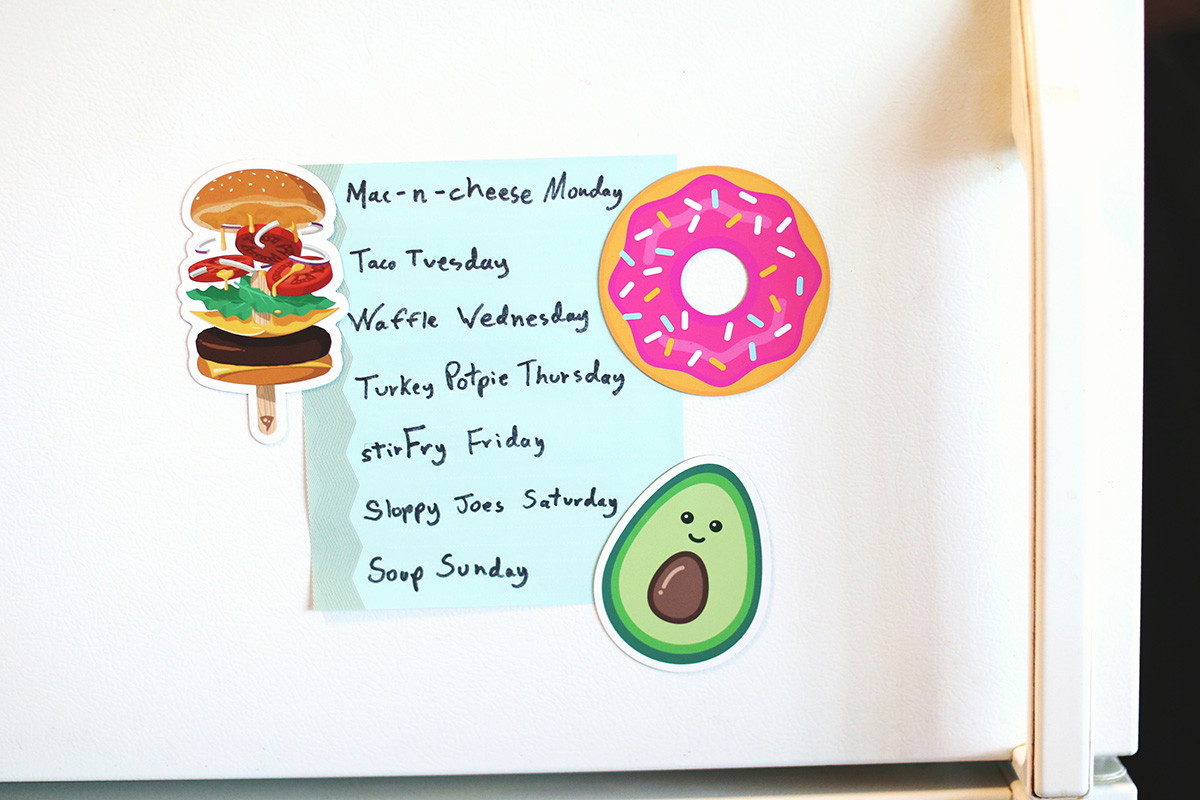 Mac-n-cheese Monday
Taco Tuesday
Waffle Wednesday
Turkey Potpie Thursday
stirFry Friday
Sloppy Joes Saturday
Soup Sunday